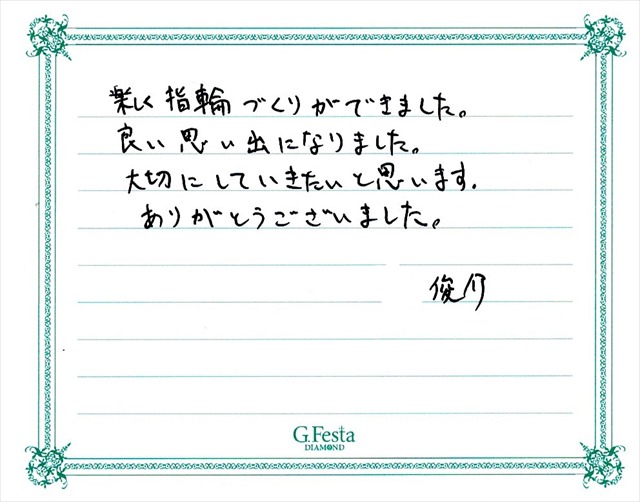 楽しく指輪づくりができました。
良い思い出になりました。
大切にしていきたいと思います.
ありがとうございました。
俊介
G.Festa
DIAMOND